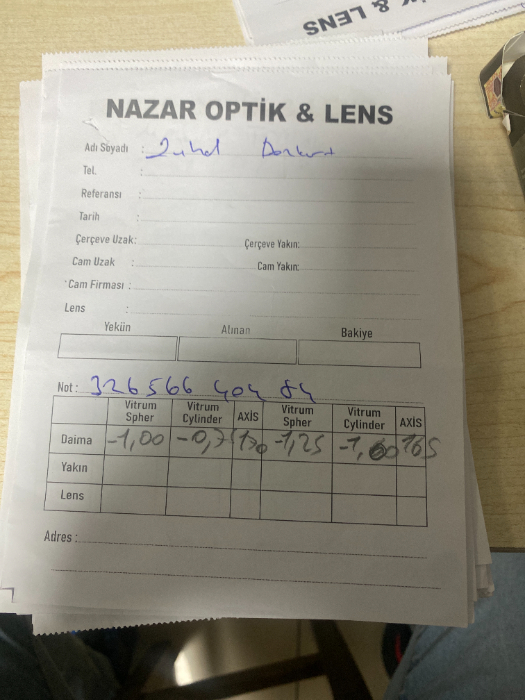 & LENS
NAZAR OPTİK & LENS
Adı Soyadı : Zuhal Bozkurt
Tel. :
Referansı :
Tarih :
Çerçeve Uzak: Çerçeve Yakın:
Cam Uzak : Cam Yakın:
Cam Firması :
Lens :
Yekün Alınan Bakiye
Not: 326 566 404 84
Vitrum Spher Vitrum Cylinder AXİS Vitrum Spher Vitrum Cylinder AXİS
Daima -1,00 -0,75 170 -1,25 -1,00 165
Yakın
Lens
Adres :